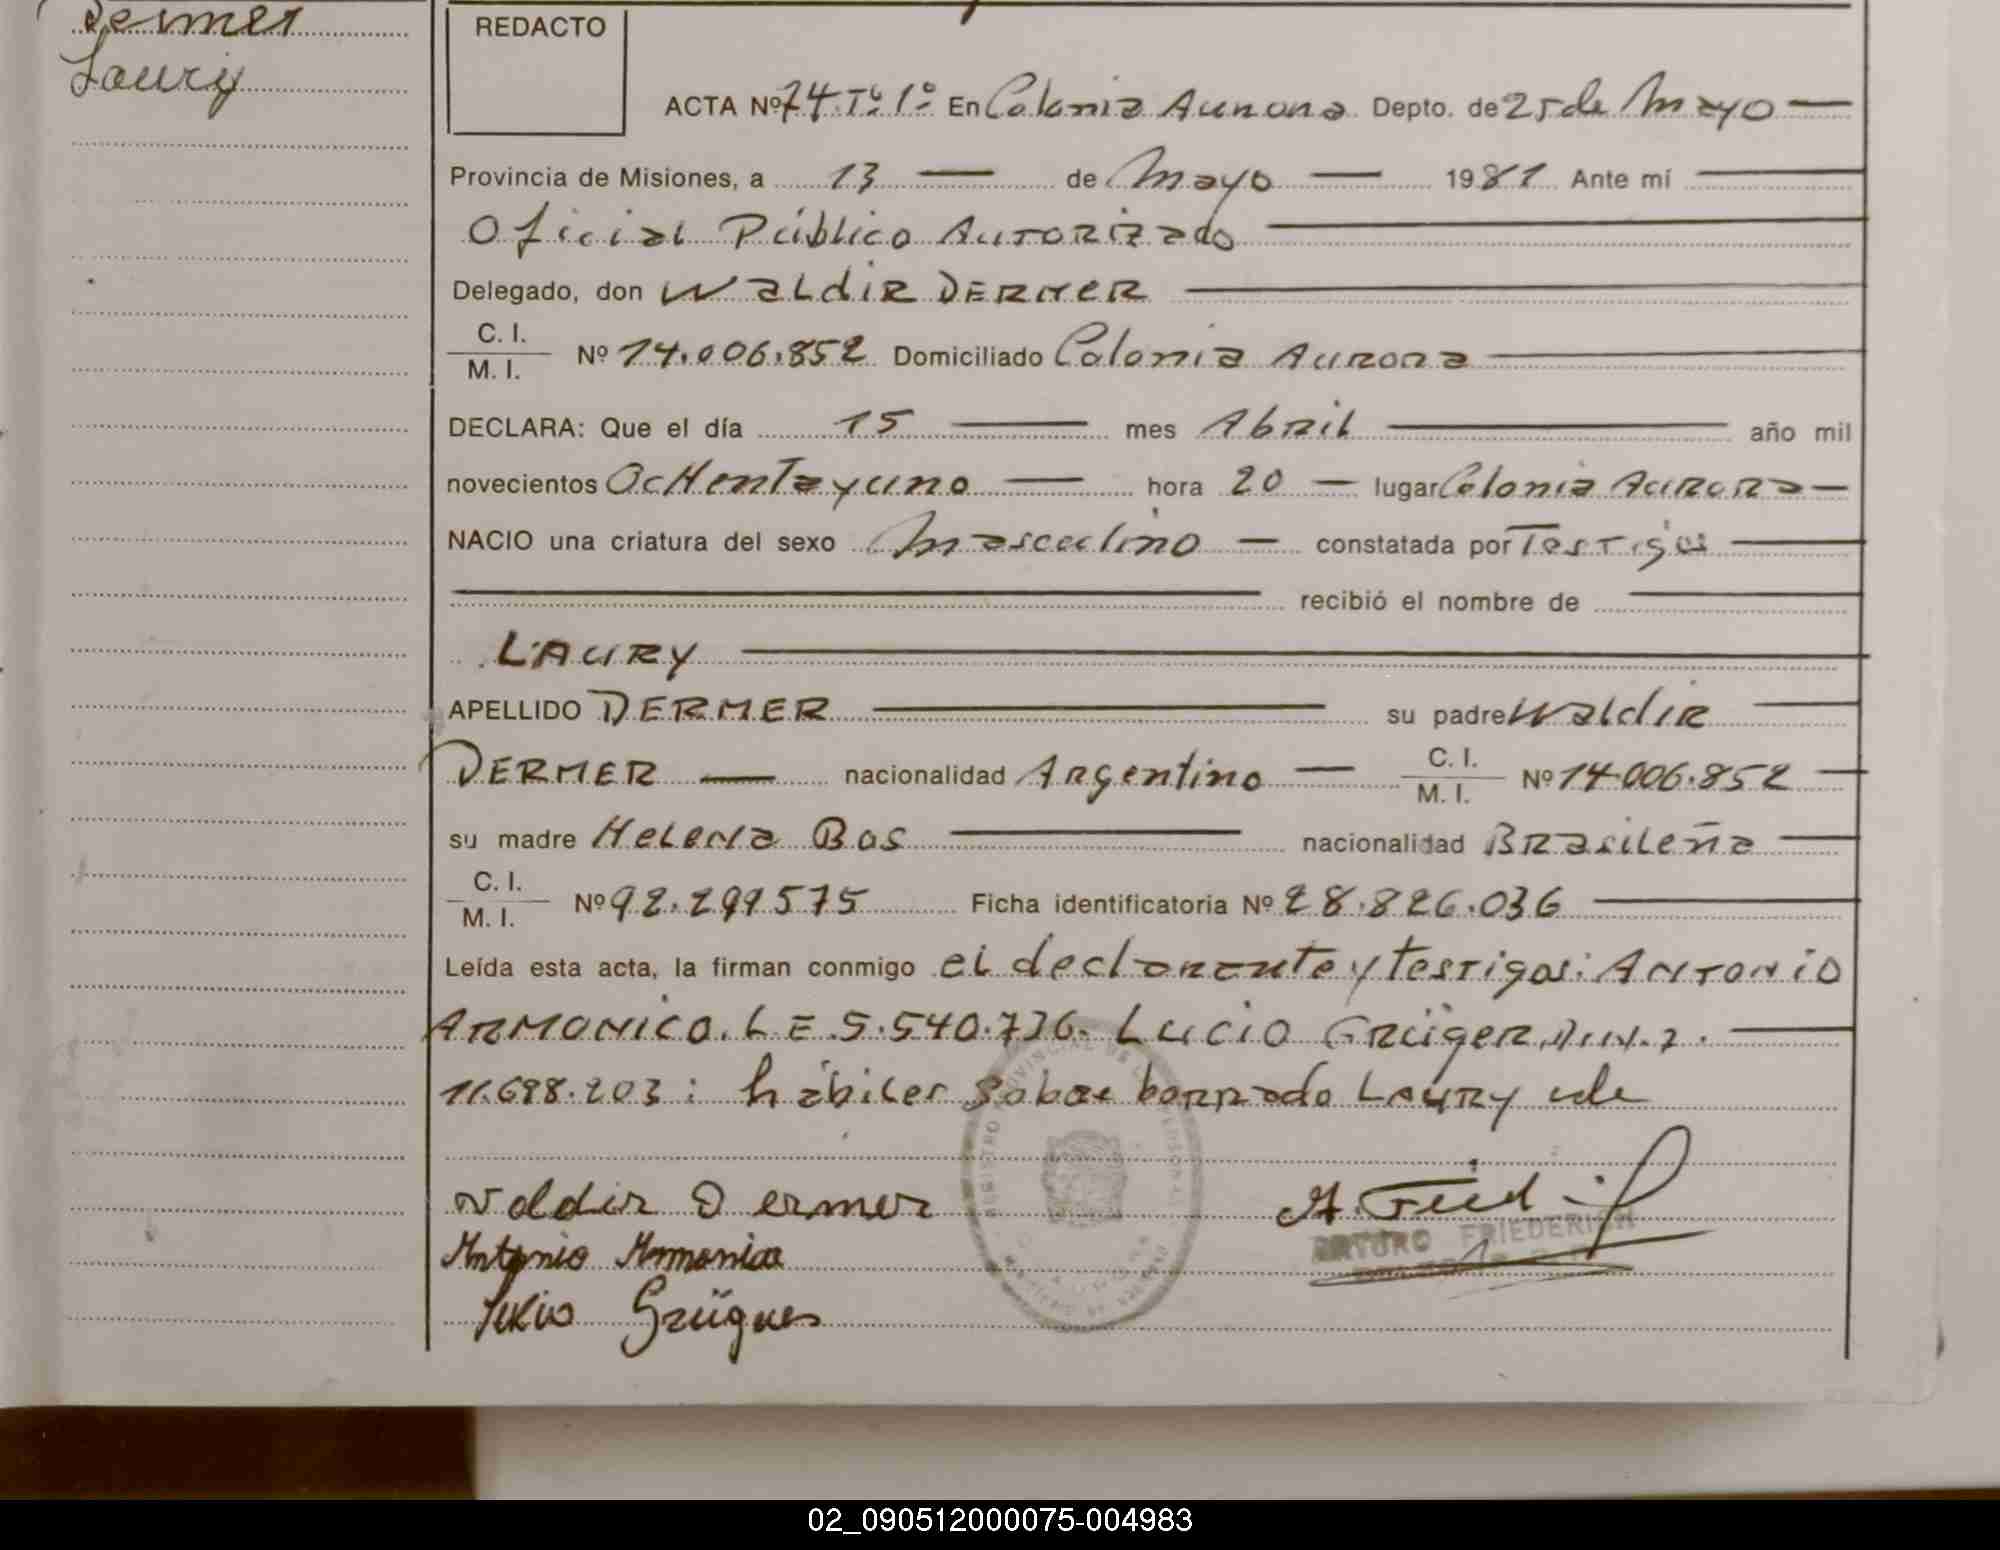 Dermer
Laury
REDACTO
ACTA Nº 74. Tº 1º En Colonia Aurora Depto. de 25 de Mayo
Provincia de Misiones, a 13 de Mayo 1981 Ante mí
Oficial Público Autorizado
Delegado, don Waldir DERMER
C. I.
M. I. Nº 14.006.852 Domiciliado Colonia Aurora
DECLARA: Que el día 15 mes Abril año mil
novecientos Ochenta y uno hora 20 lugar Colonia Aurora
NACIO una criatura del sexo Masculino constatada por Testigos
recibió el nombre de
LAURY
APELLIDO DERMER su padre Waldir
DERMER nacionalidad Argentino C. I.
M. I. Nº 14.006.852
su madre Helena Bos nacionalidad Brasileña
C. I.
M. I. Nº 92.299575 Ficha identificatoria Nº 28.826.036
Leída esta acta, la firman conmigo el declarante y testigos: ANTONIO
ARMONICO. L E 5.540.736. Lucio GRÜGER
11.698.203: hábiles Sobre borrado LAURY vale
Waldir Dermer
Antonio Armonico
A. Fried
ARTURO FRIEDERICH
Grüguer
02_090512000075-004983